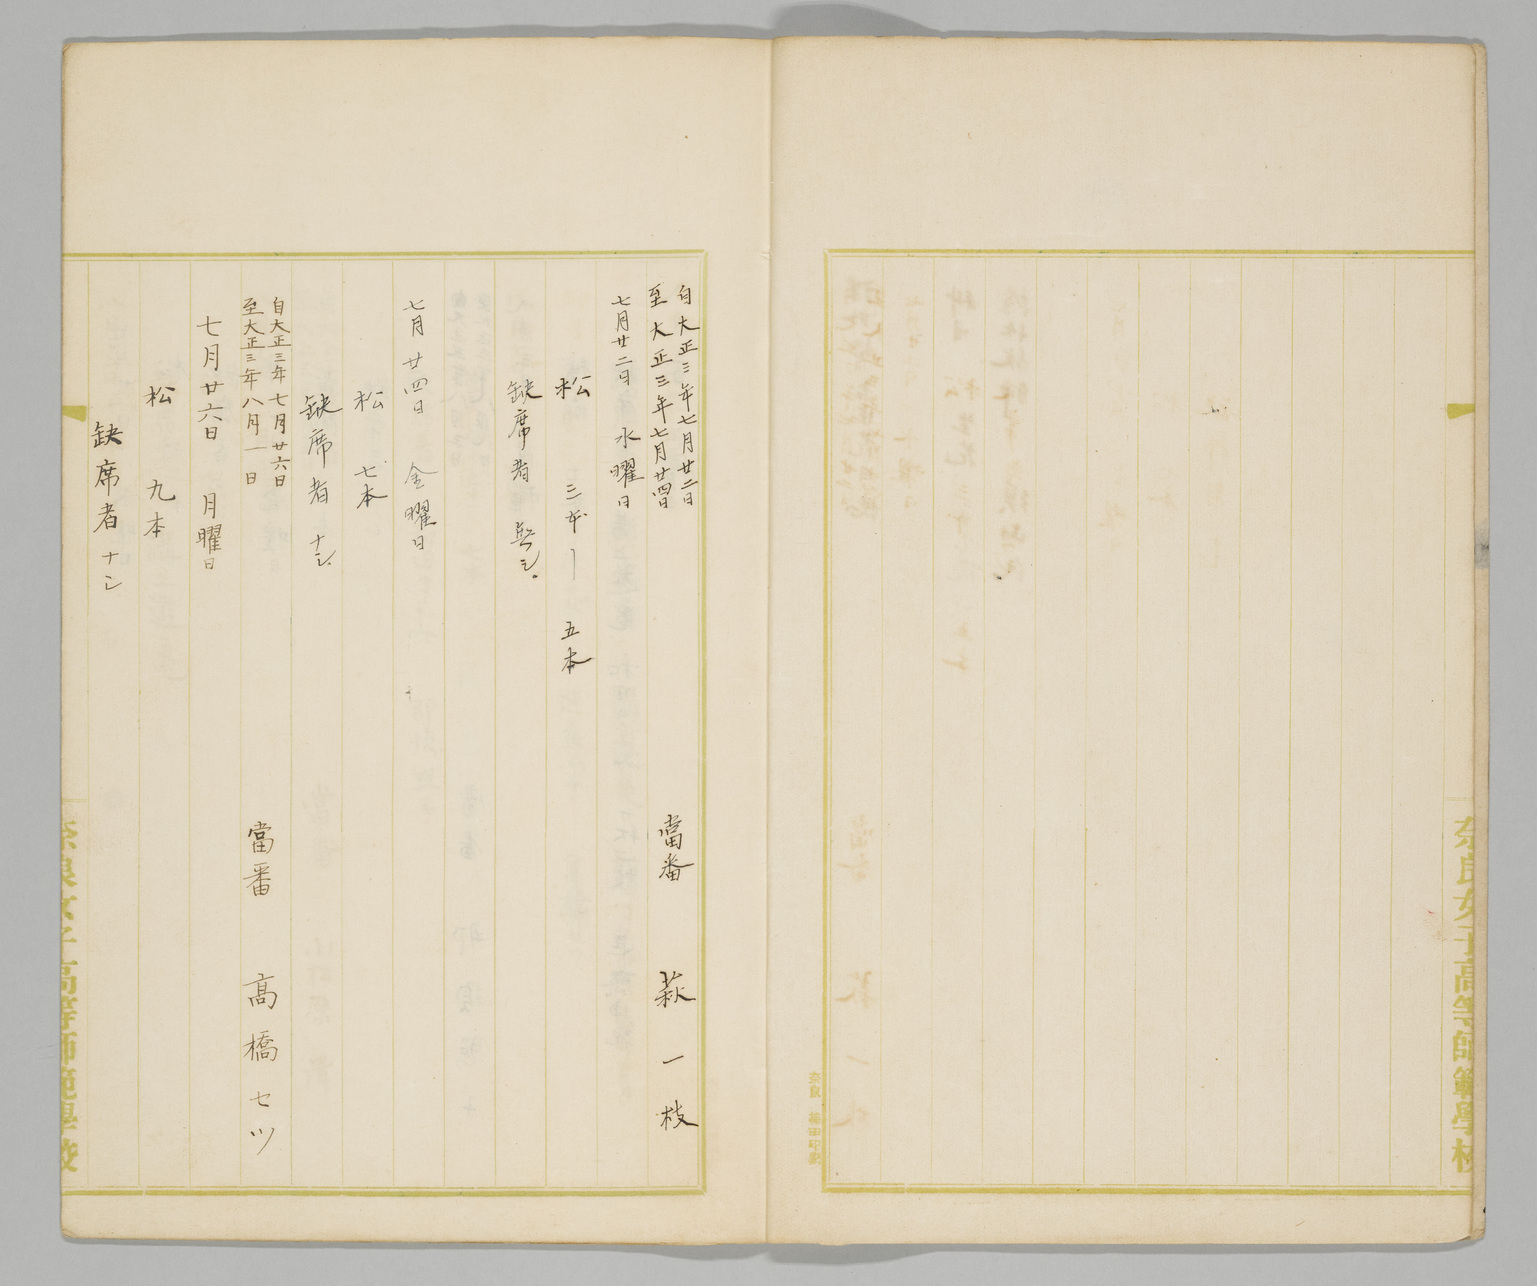 奈良女子高等師範學校
自大正三年七月廿二日
至大正三年七月廿四日
當番 萩一枝
七月廿二日 水曜日
松 三本ー五本
缺席者 無シ。
七月廿四日 金曜日
松 七本
缺席者 ナシ。
自大正三年七月廿六日
至大正三年八月一日
當番 高橋セツ
七月廿六日 月曜日
松 九本
缺席者 ナシ
奈良女子高等師範學校